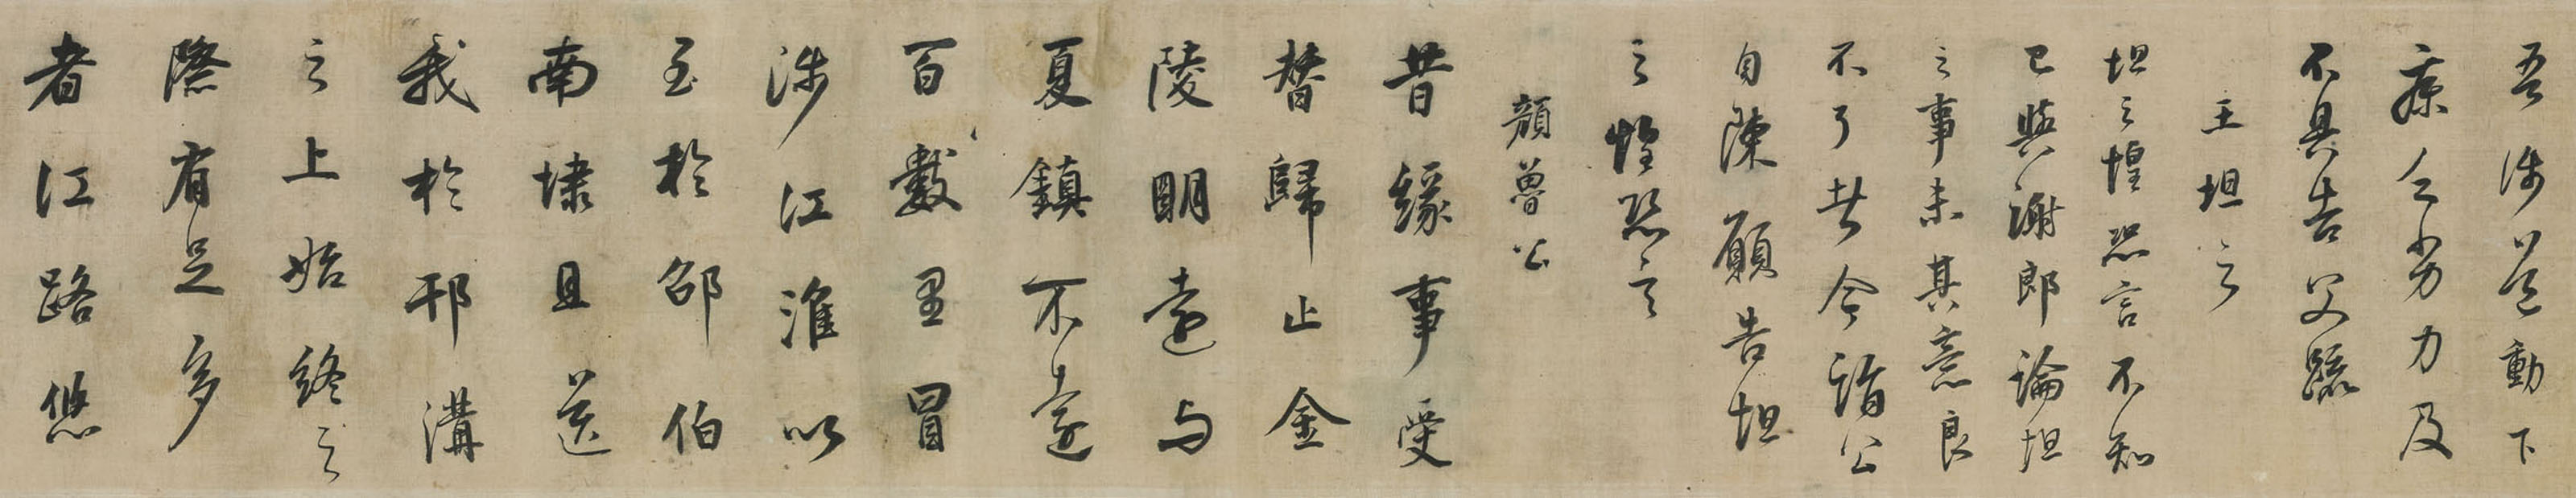 吾涉道動下
療乏劣力及
不具告父疏
王坦之
坦之惶恐言不知
已與謝郎論坦
之事未其意良
不了甚今詣公
自陳願告坦
之惶恐言
顏魯公
昔緣事受
替歸止金
陵明遠与
夏鎮不遠
百數里冒
涉江淮以
至於邵伯
南埭且送
我於邗溝
之上始終之
際有足多
者江路悠